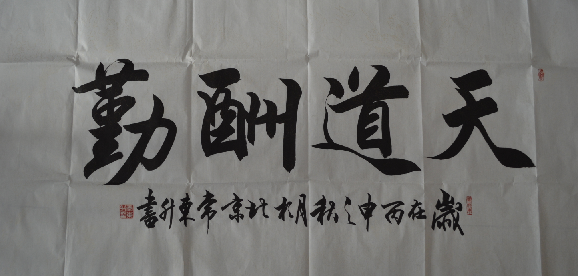 天道酬勤
歲在丙申之秋月於北京常東升書